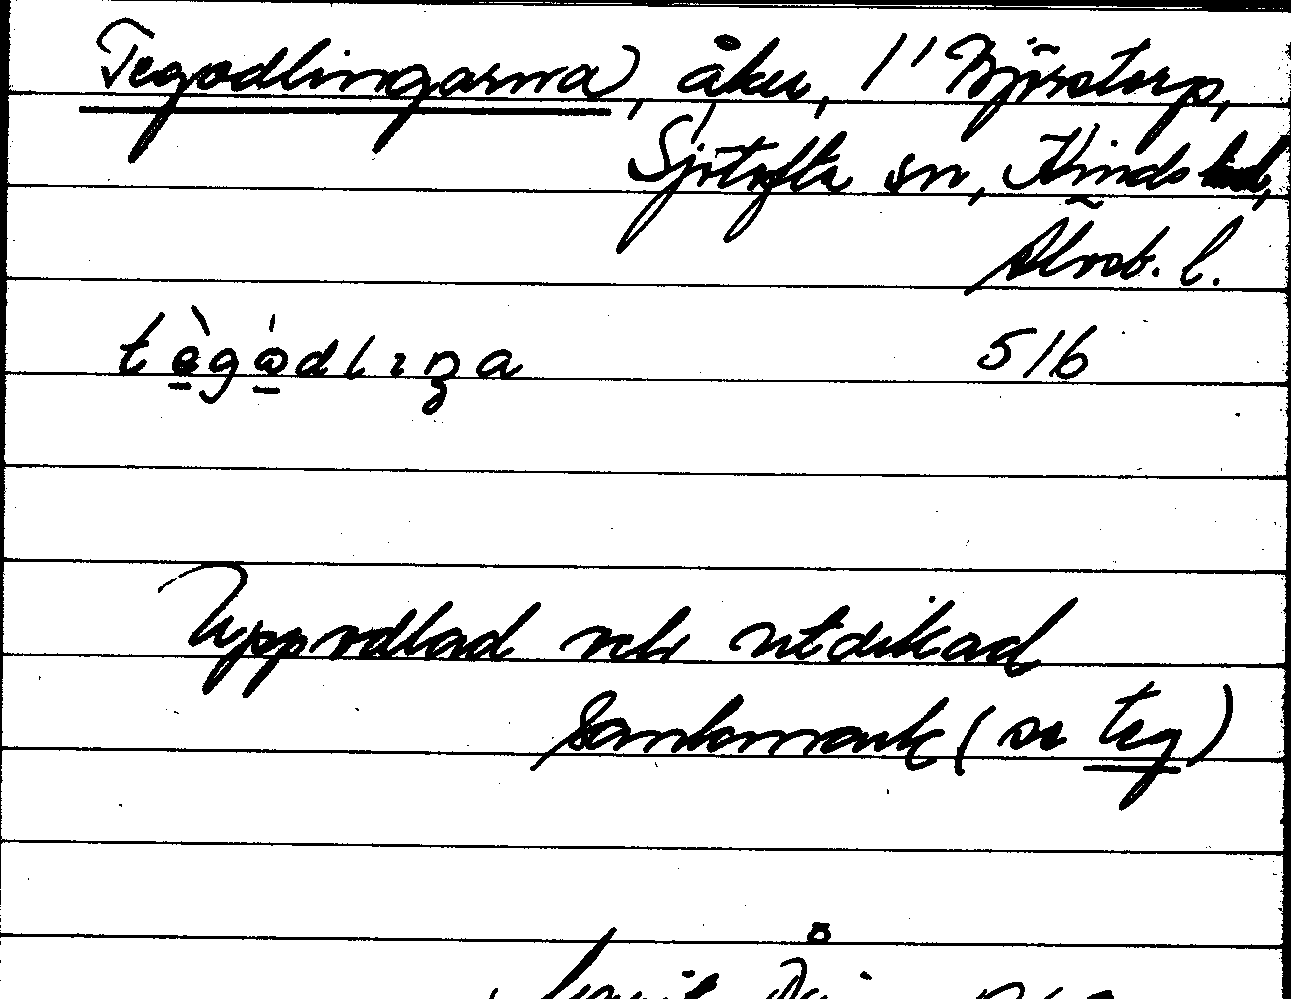 Tegodlingarna, åker, 1' Björstorp,
Sjötofta sn, Kinds hd,
Älvsb. l.
tègòdlıŋa 516
Uppodlad och utdikad
sankmark (se teg)